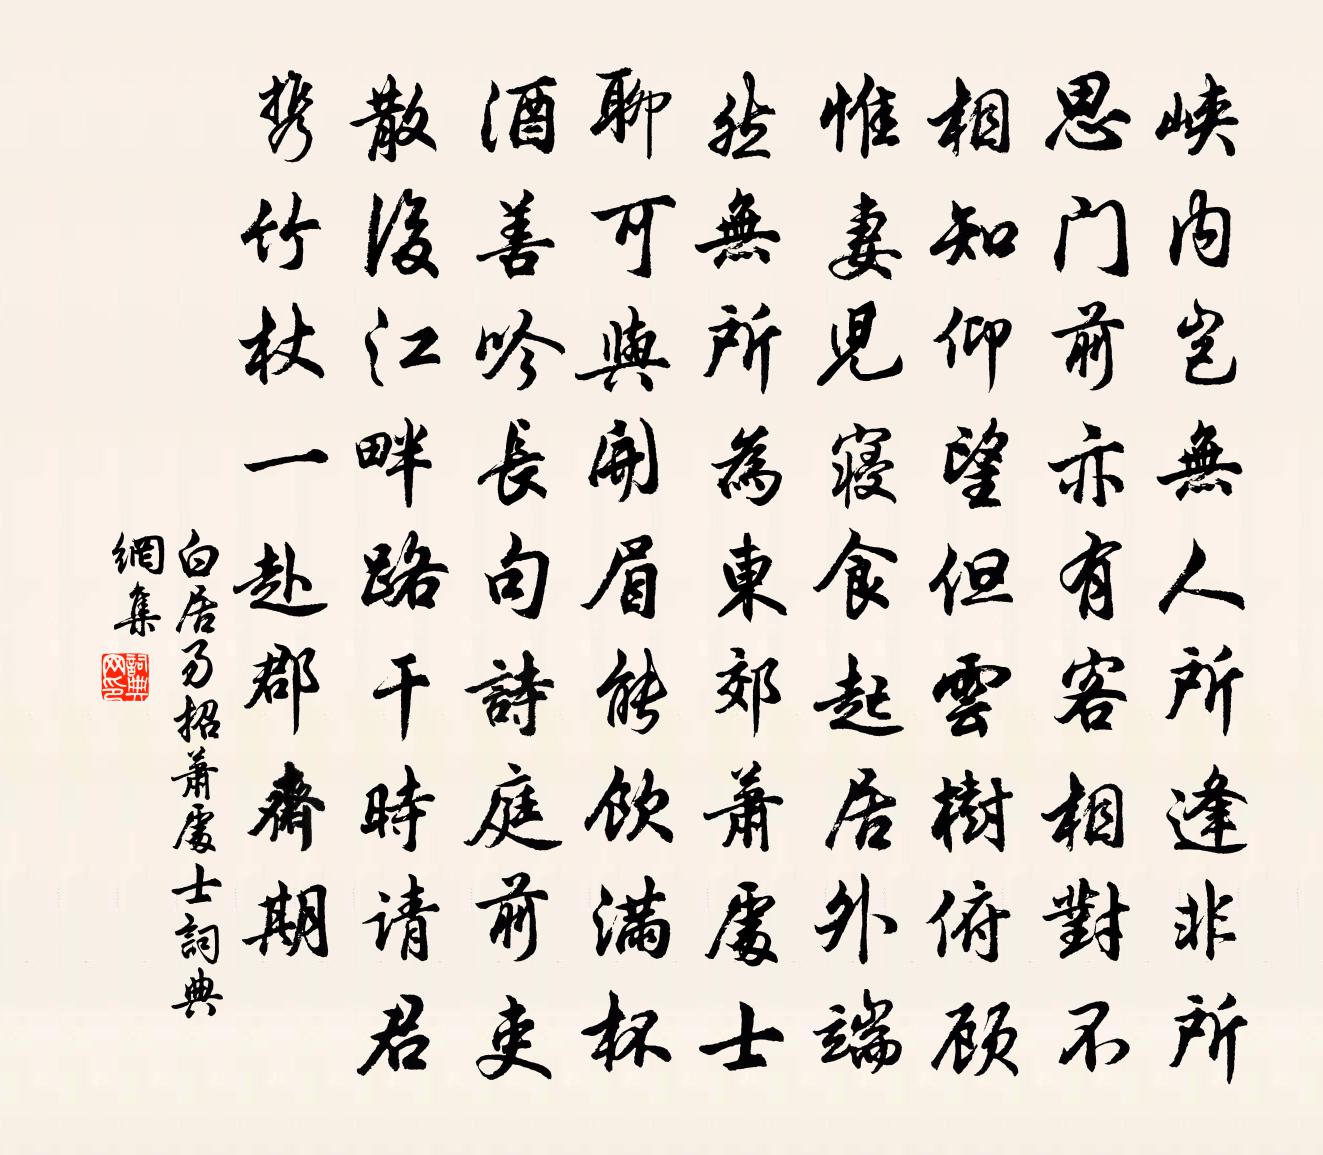 峽内岂無人所逢非所
思门前亦有客相對不
相知仰望但雲樹俯顾
惟妻兒寢食起居外端
然無所為東郊蕭處士
聊可與開眉能飲满杯
酒善吟長句詩庭前吏
散後江畔路干時请君
携竹杖一赴郡齋期
白居易招蕭處士詞典
網集
詞典
网印